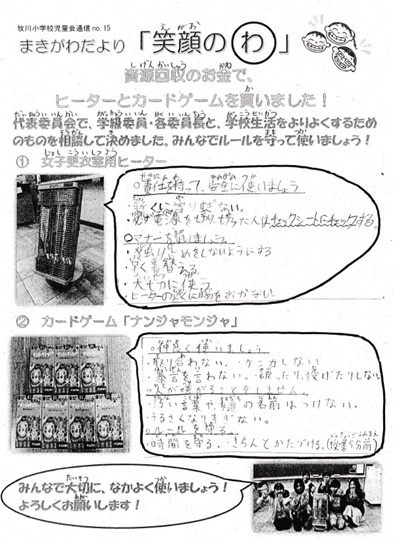 牧川小学校児童会通信 no. 15
まきがわだより「笑顔のわ」
資源回収のお金で、
ヒーターとカードゲームを買いました！
代表委員会で、学級委員・各委員長と、学校生活をよりよくするため
のものを相談して決めました。みんなでルールを守って使いましょう！
① 女子更衣室用ヒーター
○責任を持って、安全に使いましょう
・近くに寄りすぎない。
電源を切り 切った人はチェックシートにチェックする。
○マナーを
・ひとりじめをしないようにする
・早く着替える。
・大切に使う
・ヒーターの近くに物をおかない
② カードゲーム「ナンジャモンジャ」
○仲良く使いましょう
・取り合わない。・ケンカしない
・暴言を言わない。・破ったり、投げたりしない
○人が嫌がることをしません。
・言葉や の名前はつけない。
・うるさくなりすぎない。
○ルールを守る。
・時間を守る。・きちんとかたづける。(授業 分前)
みんなで大切に、なかよく使いましょう！
よろしくお願いします！